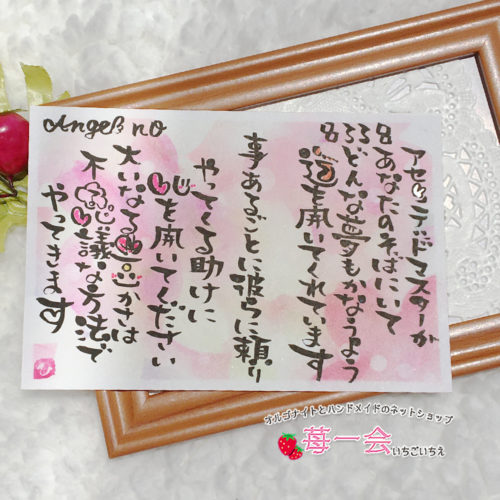 Angel's no
8338
アセンデッドマスターが
あなたのそばにいて
どんな夢もかなうよう
道を開いてくれています
事あるごとに彼らに頼り
やってくる助けに
心を開いてください
大いなる豊かさは
不思議な方法で
やってきます♡
オルゴナイトとハンドメイドのネットショップ
苺一会いちごいちえ